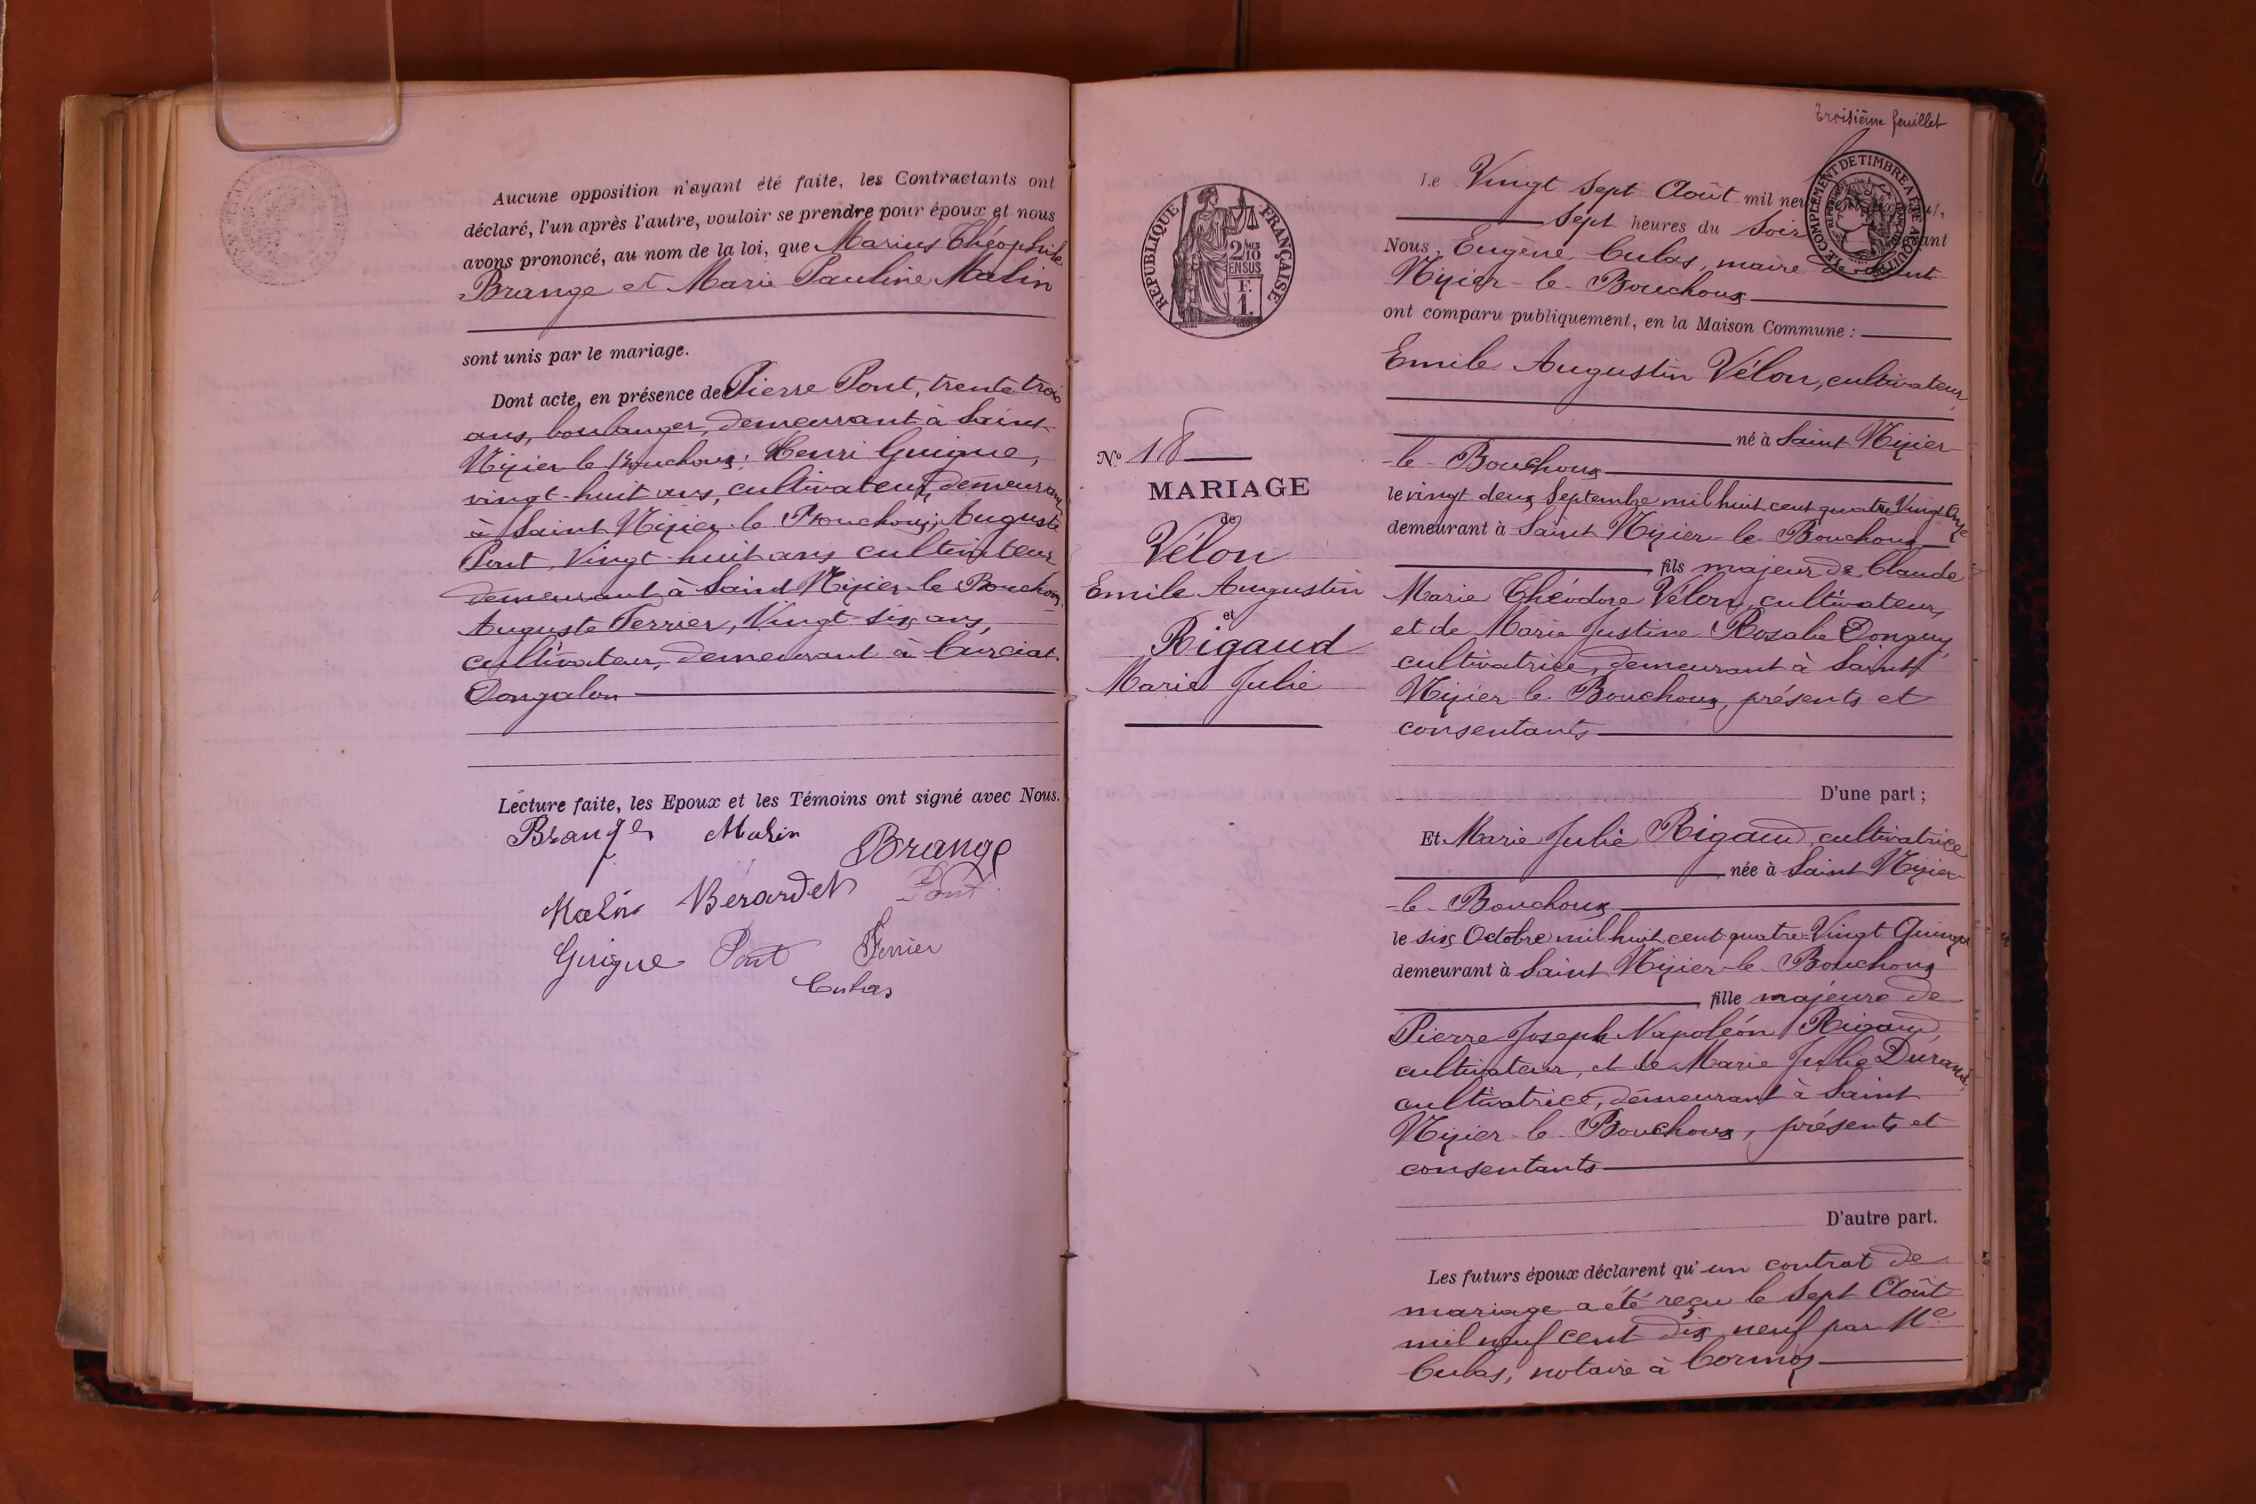 Aucune opposition n'ayant été faite, les Contractants ont
déclaré, l'un après l'autre, vouloir se prendre pour époux et nous
avons prononcé, au nom de la loi, que Marius Théophile
Brange et Marie Pauline Malin
sont unis par le mariage.
Dont acte, en présence de Pierre Pont, trente trois
ans, boulanger, demeurant à Saint-
Nizier le Bouchoux; Henri Guigue,
vingt-huit ans, cultivateur, demeurant
à Saint Nizier-le Bouchoux, Auguste
Pont, Vingt-huit ans, cultivateur
demeurant à Saint Nizier-le Bouchoux
Auguste Ferrier, Vingt-six ans,
cultivateur, demeurant à Curciat-
Dongalon
Lecture faite, les Epoux et les Témoins ont signé avec Nous.
Brange Malin Brange
Malin Bérardet Pont
Guigue Pont Ferrier
Cubas
Troisième feuillet
RÉPUBLIQUE FRANÇAISE
2/10
EN SUS
F.
1.
N.° 18
MARIAGE
de
Vélon
Emile Augustin
et
Rigaud
Marie Julie
LE COMPLÉMENT DE TIMBRE A ÉTÉ ACQUITTÉ
Le Vingt Sept Août mil neuf
Sept heures du Soir
Nous, Eugène Cubas, maire de Saint-
Nizier-le-Bouchoux
ont comparu publiquement, en la Maison Commune :
Emile Augustin Vélon, cultivateur,
né à Saint Nizier
-le-Bouchoux
le vingt deux Septembre mil huit cent quatre Vingt Onze
demeurant à Saint Nizier-le-Bouchoux
fils majeur de Claude
Marie Théodore Vélon, cultivateur,
et de Marie Justine Rosalie Donguy,
cultivatrice, demeurant à Saint
Nizier-le-Bouchoux, présents et
consentants
D'une part ;
Et Marie Julie Rigaud, cultivatrice
née à Saint Nizier
-le-Bouchoux
le six Octobre mil huit cent quatre-Vingt Quinze
demeurant à Saint Nizier-le-Bouchoux
fille majeure de
Pierre Joseph Napoléon Rigaud,
cultivateur, et de Marie Julie Durand,
cultivatrice, demeurant à Saint
Nizier-le-Bouchoux, présents et
consentants
D'autre part.
Les futurs époux déclarent qu'un contrat de
mariage a été reçu le Sept Août
mil neuf cent dix neuf par Me
Cubas, notaire à Cormoz